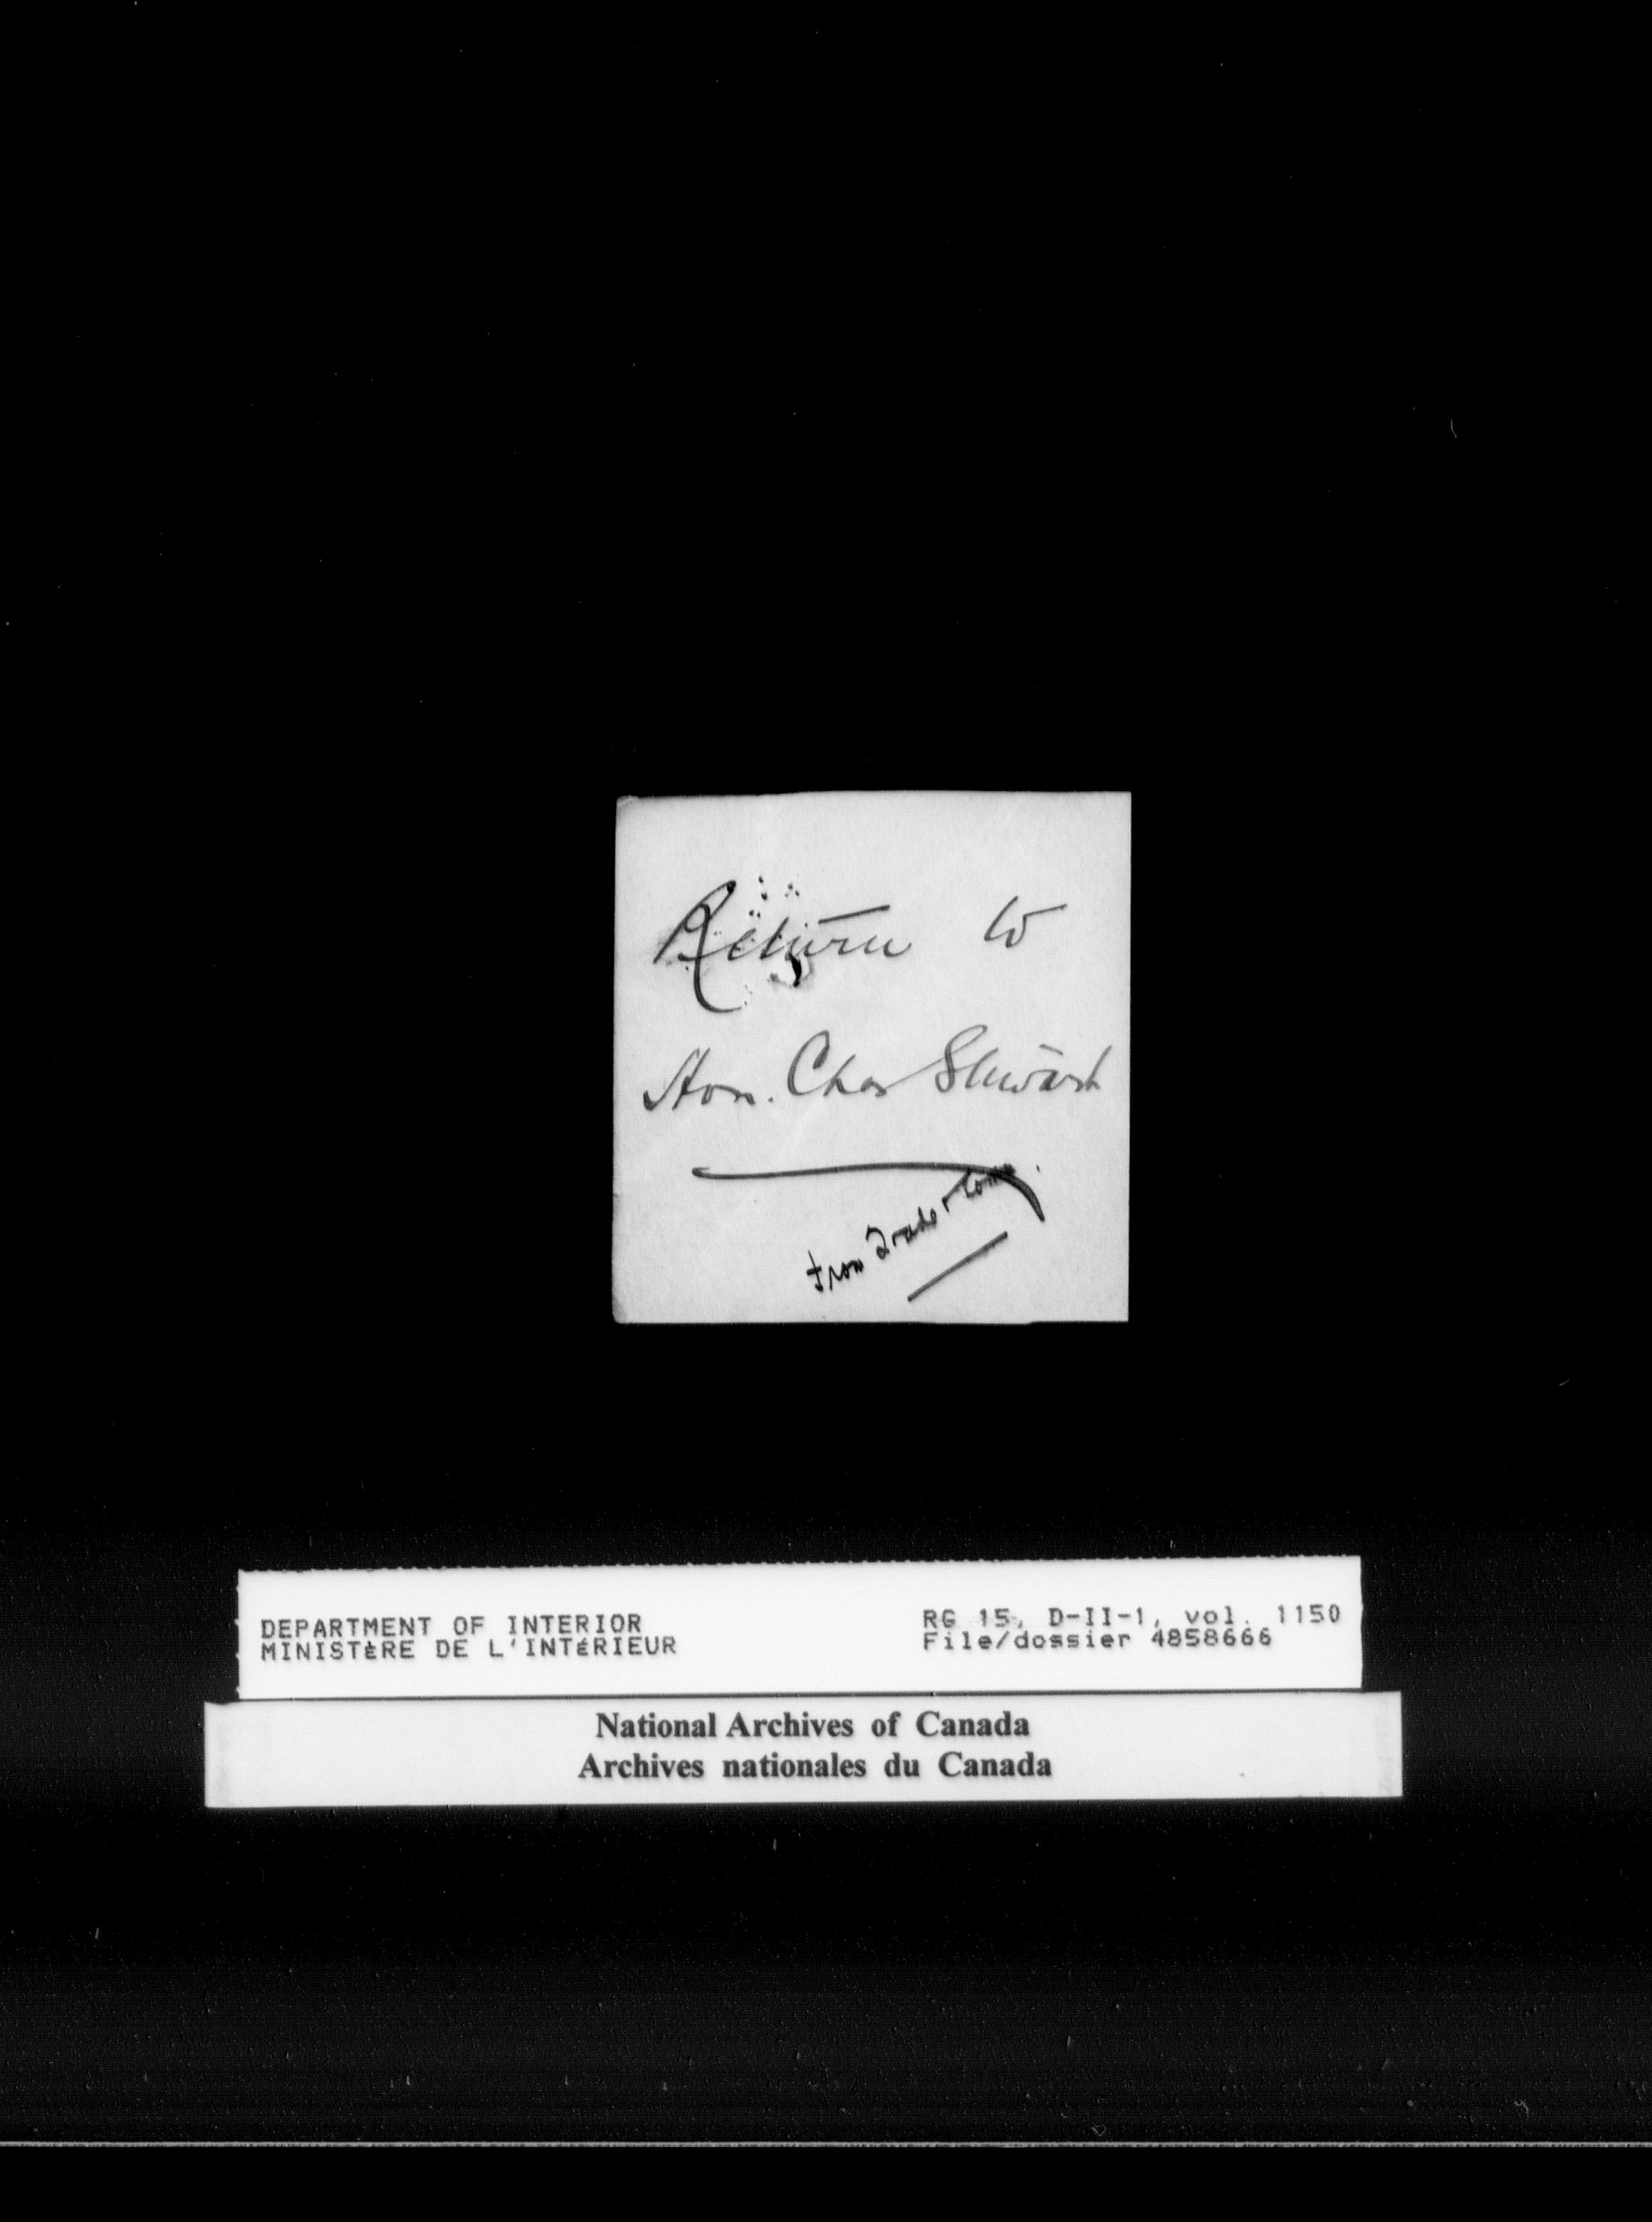 Return to
Hon. Chas Stewart
from Trade & Com.
DEPARTMENT OF INTERIOR
MINISTÈRE DE L'INTÉRIEUR
RG 15, D-II-1, vol. 1150
File/dossier 4858666
National Archives of Canada
Archives nationales du Canada